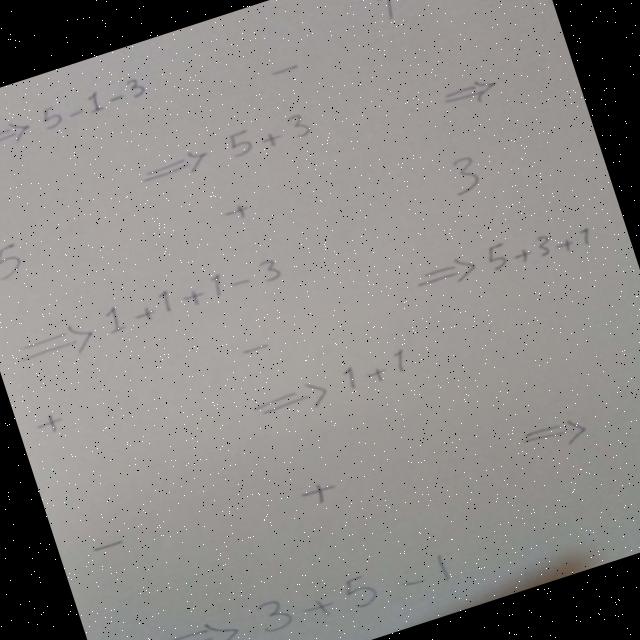 1
-
⇒ 5-1-3
⇒
⇒ 5+3
3
+
5
⇒ 5+3+1
⇒ 1+1+1-3
-
⇒ 1+1
+
⇒
+
-
⇒ 3+5-1